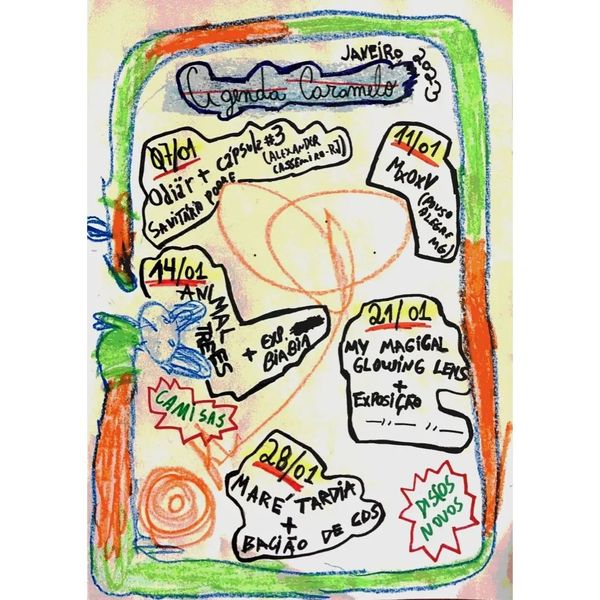 JANEIRO, 2023
Agenda Caramelo
07/01
Odiär + CÁPSULE #3
SANITÁRIO PODRE
(ALEXANDER
CASSEMIRO-RJ)
11/01
MXOXV
(POUSO
ALEGRE
MG)
14/01
ANI
MALES
TRES
+ EXP
BIABIA
21/01
MY MAGICAL
GLOWING LENS
+
EXPOSIÇÃO
CAMISAS
28/01
MARÉ TARDIA
+
BACIÃO DE CDS
DISCOS
NOVOS